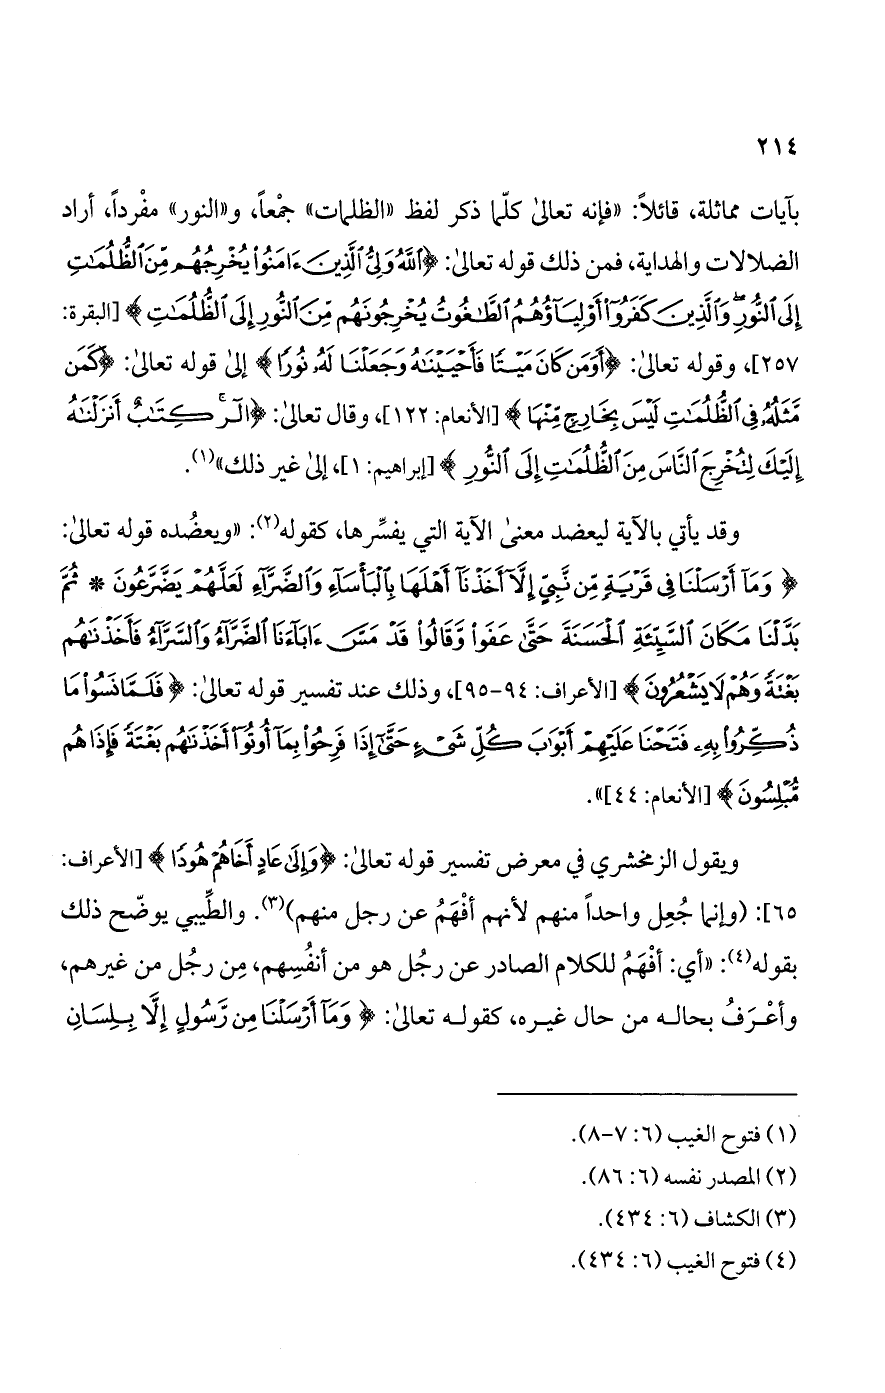 ٢١٤
بآيات مماثلة، قائلاً: «فإنه تعالىٰ كلّما ذكر لفظ «الظلمات» جمْعاً، و«النور» مفْرداً، أراد
الضلالات والهداية، فمن ذلك قوله تعالىٰ: ﴿ٱللَّهُ وَلِيُّ ٱلَّذِينَ ءَامَنُوا۟ يُخْرِجُهُم مِّنَ ٱلظُّلُمَٰتِ
إِلَى ٱلنُّورِ ۖ وَٱلَّذِينَ كَفَرُوٓا۟ أَوْلِيَآؤُهُمُ ٱلطَّٰغُوتُ يُخْرِجُونَهُم مِّنَ ٱلنُّورِ إِلَى ٱلظُّلُمَٰتِ﴾ [البقرة:
٢٥٧]، وقوله تعالىٰ: ﴿أَوَمَن كَانَ مَيْتًا فَأَحْيَيْنَٰهُ وَجَعَلْنَا لَهُۥ نُورًا﴾ إلىٰ قوله تعالىٰ: ﴿كَمَن
مَّثَلُهُۥ فِى ٱلظُّلُمَٰتِ لَيْسَ بِخَارِجٍ مِّنْهَا﴾ [الأنعام: ١٢٢]، وقال تعالىٰ: ﴿الٓر ۚ كِتَٰبٌ أَنزَلْنَٰهُ
إِلَيْكَ لِتُخْرِجَ ٱلنَّاسَ مِنَ ٱلظُّلُمَٰتِ إِلَى ٱلنُّورِ﴾ [إبراهيم: ١]، إلىٰ غير ذلك»(١).
وقد يأتي بالآية ليعضد معنىٰ الآية التي يفسِّرها، كقوله(٢): «ويعضُده قوله تعالىٰ:
﴿وَمَآ أَرْسَلْنَا فِى قَرْيَةٍ مِّن نَّبِىٍّ إِلَّآ أَخَذْنَآ أَهْلَهَا بِٱلْبَأْسَآءِ وَٱلضَّرَّآءِ لَعَلَّهُمْ يَضَّرَّعُونَ * ثُمَّ
بَدَّلْنَا مَكَانَ ٱلسَّيِّئَةِ ٱلْحَسَنَةَ حَتَّىٰ عَفَوا۟ وَّقَالُوا۟ قَدْ مَسَّ ءَابَآءَنَا ٱلضَّرَّآءُ وَٱلسَّرَّآءُ فَأَخَذْنَٰهُم
بَغْتَةً وَهُمْ لَا يَشْعُرُونَ﴾ [الأعراف: ٩٤-٩٥]، وذلك عند تفسير قوله تعالىٰ: ﴿فَلَمَّا نَسُوا۟ مَا
ذُكِّرُوا۟ بِهِۦ فَتَحْنَا عَلَيْهِمْ أَبْوَٰبَ كُلِّ شَىْءٍ حَتَّىٰٓ إِذَا فَرِحُوا۟ بِمَآ أُوتُوٓا۟ أَخَذْنَٰهُم بَغْتَةً فَإِذَا هُم
مُّبْلِسُونَ﴾ [الأنعام: ٤٤]».
ويقول الزمخشري في معرض تفسير قوله تعالىٰ: ﴿وَإِلَىٰ عَادٍ أَخَاهُمْ هُودًا﴾ [الأعراف:
٦٥]: (وإنما جُعِل واحداً منهم لأنهم أفْهَمُ عن رجل منهم)(٣). والطِّيبي يوضّح ذلك
بقوله(٤): «أي: أفْهَمُ للكلام الصادر عن رجُل هو من أنفُسِهم، مِن رجُل من غيرهم،
وأعْرَفُ بحاله من حال غيره، كقوله تعالىٰ: ﴿وَمَآ أَرْسَلْنَا مِن رَّسُولٍ إِلَّا بِلِسَانِ
(١) فتوح الغيب (٦: ٧-٨).
(٢) المصدر نفسه (٦: ٨٦).
(٣) الكشاف (٦: ٤٣٤).
(٤) فتوح الغيب (٦: ٤٣٤).